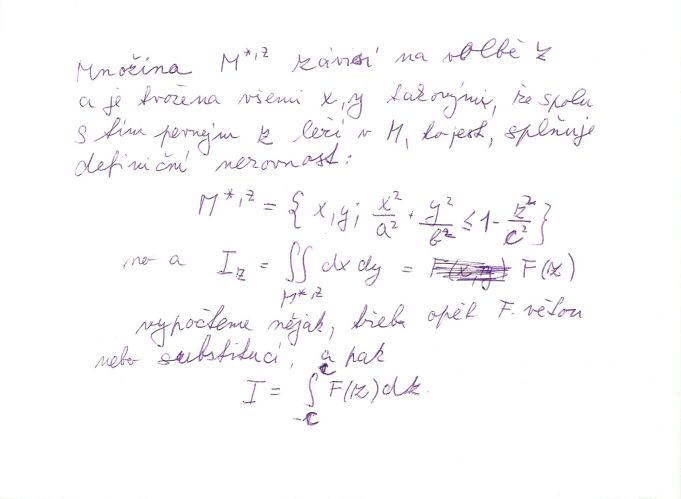 Množina M*,z závisí na volbě z
a je tvořena všemi x,y takovými, že spolu
s tím pevným z leží v M, to jest, splňuje
definiční nerovnost:
M*,z = { x,y; x²/a² + y²/b² ≤ 1 - z²/c² }
no a I_z = ∬ dx dy = F(z)
M*,z
vypočteme nějak, třeba opět F. větou
nebo substitucí, a pak
I = ∫ F(z) dz
c
-c